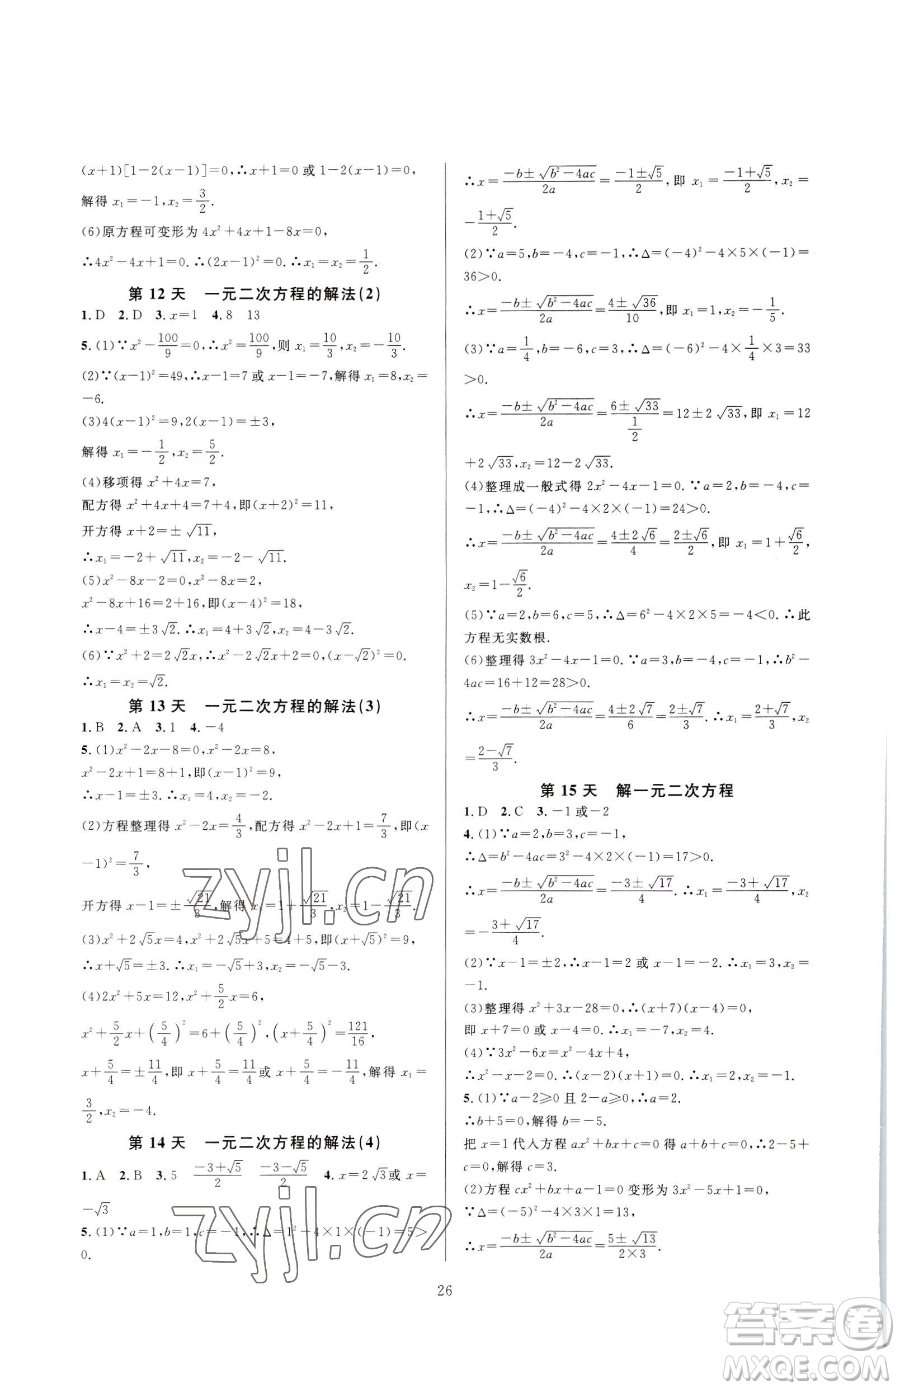 (x+1)[1-2(x-1)]=0,∴x+1=0 或 1-2(x-1)=0,
解得 x₁=-1,x₂=3/2.
(6)原方程可变形为 4x²+4x+1-8x=0,
∴4x²-4x+1=0.∴(2x-1)²=0.∴x₁=x₂=1/2.
第 12 天 一元二次方程的解法(2)
1.D 2.D 3.x=1 4.8 13
5.(1)∵x²-100/9=0,∴x²=100/9,则 x₁=10/3,x₂=-10/3.
(2)∵(x-1)²=49,∴x-1=7 或 x-1=-7,解得 x₁=8,x₂=
-6.
(3)4(x-1)²=9,2(x-1)=±3,
解得 x₁=-1/2,x₂=5/2.
(4)移项得 x²+4x=7,
配方得 x²+4x+4=7+4,即(x+2)²=11,
开方得 x+2=±√11,
∴x₁=-2+√11,x₂=-2-√11.
(5)x²-8x=2,
x²-8x+16=2+16,即(x-4)²=18,
∴x-4=±3√2.∴x₁=4+3√2,x₂=4-3√2.
(6)∵x²+2=2√2x,∴x²-2√2x+2=0.∴(x-√2)²=0.
∴x₁=x₂=√2.
第 13 天 一元二次方程的解法(3)
1.B 2.A 3.1 4.-4
5.(1)x²-2x-8=0,x²-2x=8,
x²-2x+1=8+1,即(x-1)²=9,
∴x-1=±3.∴x₁=4,x₂=-2.
(2)方程整理得 x²-2x=4/3,配方得 x²-2x+1=7/3,即(x
-1)²=7/3,
开方得 x-1=±√21/3,解得 x₁=1+√21/3,x₂=1-√21/3.
(3)x²+2√5x=4,x²+2√5x+5=4+5,即(x+√5)²=9,
∴x+√5=±3.∴x₁=3-√5,x₂=-3-√5.
(4)2x²+5x-12=0,x²+5/2x=6,
x²+5/2x+(5/4)²=6+(5/4)²,即(x+5/4)²=121/16,
x+5/4=±11/4,即 x+5/4=11/4或 x+5/4=-11/4,解得 x₁=
3/2,x₂=-4.
第 14 天 一元二次方程的解法(4)
1.A 2.B 3.5 (-3+√5)/2 (-3-√5)/2 4.x=2√3或 x=
-√3
5.(1)∵a=1,b=1,c=-1,∴Δ=1²-4×1×(-1)=5>
0.
∴x=(-b±√(b²-4ac))/2a=(-1±√5)/2,即 x₁=(-1+√5)/2,x₂=
-(1+√5)/2.
(2)∵a=5,b=-4,c=-1,∴Δ=(-4)²-4×5×(-1)=
36>0.
∴x=(-b±√(b²-4ac))/2a=(4±√36)/10,即 x₁=1,x₂=-1/5.
(3)∵a=1/4,b=-6,c=3,∴Δ=(-6)²-4×1/4×3=33
>0.
∴x=(-b±√(b²-4ac))/2a=(6±√33)/(1/2)=12±2√33,即 x₁=12
+2√33,x₂=12-2√33.
(4)整理成一般式得 2x²-4x-1=0.∵a=2,b=-4,c=
-1,∴Δ=(-4)²-4×2×(-1)=24>0.
∴x=(-b±√(b²-4ac))/2a=(4±2√6)/4=(2±√6)/2,即 x₁=1+√6/2,
x₂=1-√6/2.
(5)∵a=2,b=6,c=5,∴Δ=6²-4×2×5=-4<0.∴此
方程无实数根.
(6)整理得 3x²-4x-1=0.∵a=3,b=-4,c=-1,∴b²-
4ac=16+12=28>0.
∴x=(-b±√(b²-4ac))/2a=(4±2√7)/6=(2±√7)/3.∴x₁=(2+√7)/3,x₂
=(2-√7)/3.
第 15 天 解一元二次方程
1.D 2.C 3.-1或-2
4.(1)∵a=2,b=3,c=-1,
∴Δ=b²-4ac=3²-4×2×(-1)=17>0.
∴x=(-b±√(b²-4ac))/2a=(-3±√17)/4.∴x₁=(-3+√17)/4,x₂
=-(3+√17)/4.
(2)∵x-1=±2,∴x-1=2或x-1=-2.∴x₁=3,x₂=
-1.
(3)整理得 x²+3x-28=0,∴(x+7)(x-4)=0,
即 x+7=0 或 x-4=0.∴x₁=-7,x₂=4.
(4)∵3x²-6=2x²+x,
∴x²-x-6=0.∴(x-3)(x+2)=0.∴x₁=3,x₂=-2.
5.(1)∵a-2≥0 且 2-a≥0,∴a=2.
∴b+5=0,解得 b=-5.
把 x=1 代入方程 ax²+bx+c=0 得 a+b+c=0,∴2-5+
c=0,解得 c=3.
(2)方程 cx²+bx+1=0 变形为 3x²-5x+1=0,
∵Δ=(-5)²-4×3×1=13,
∴x=(-b±√(b²-4ac))/2a=(5±√13)/(2×3).
26
zyjl.cn
zyjl.cn
答案圈
MXQE.COM